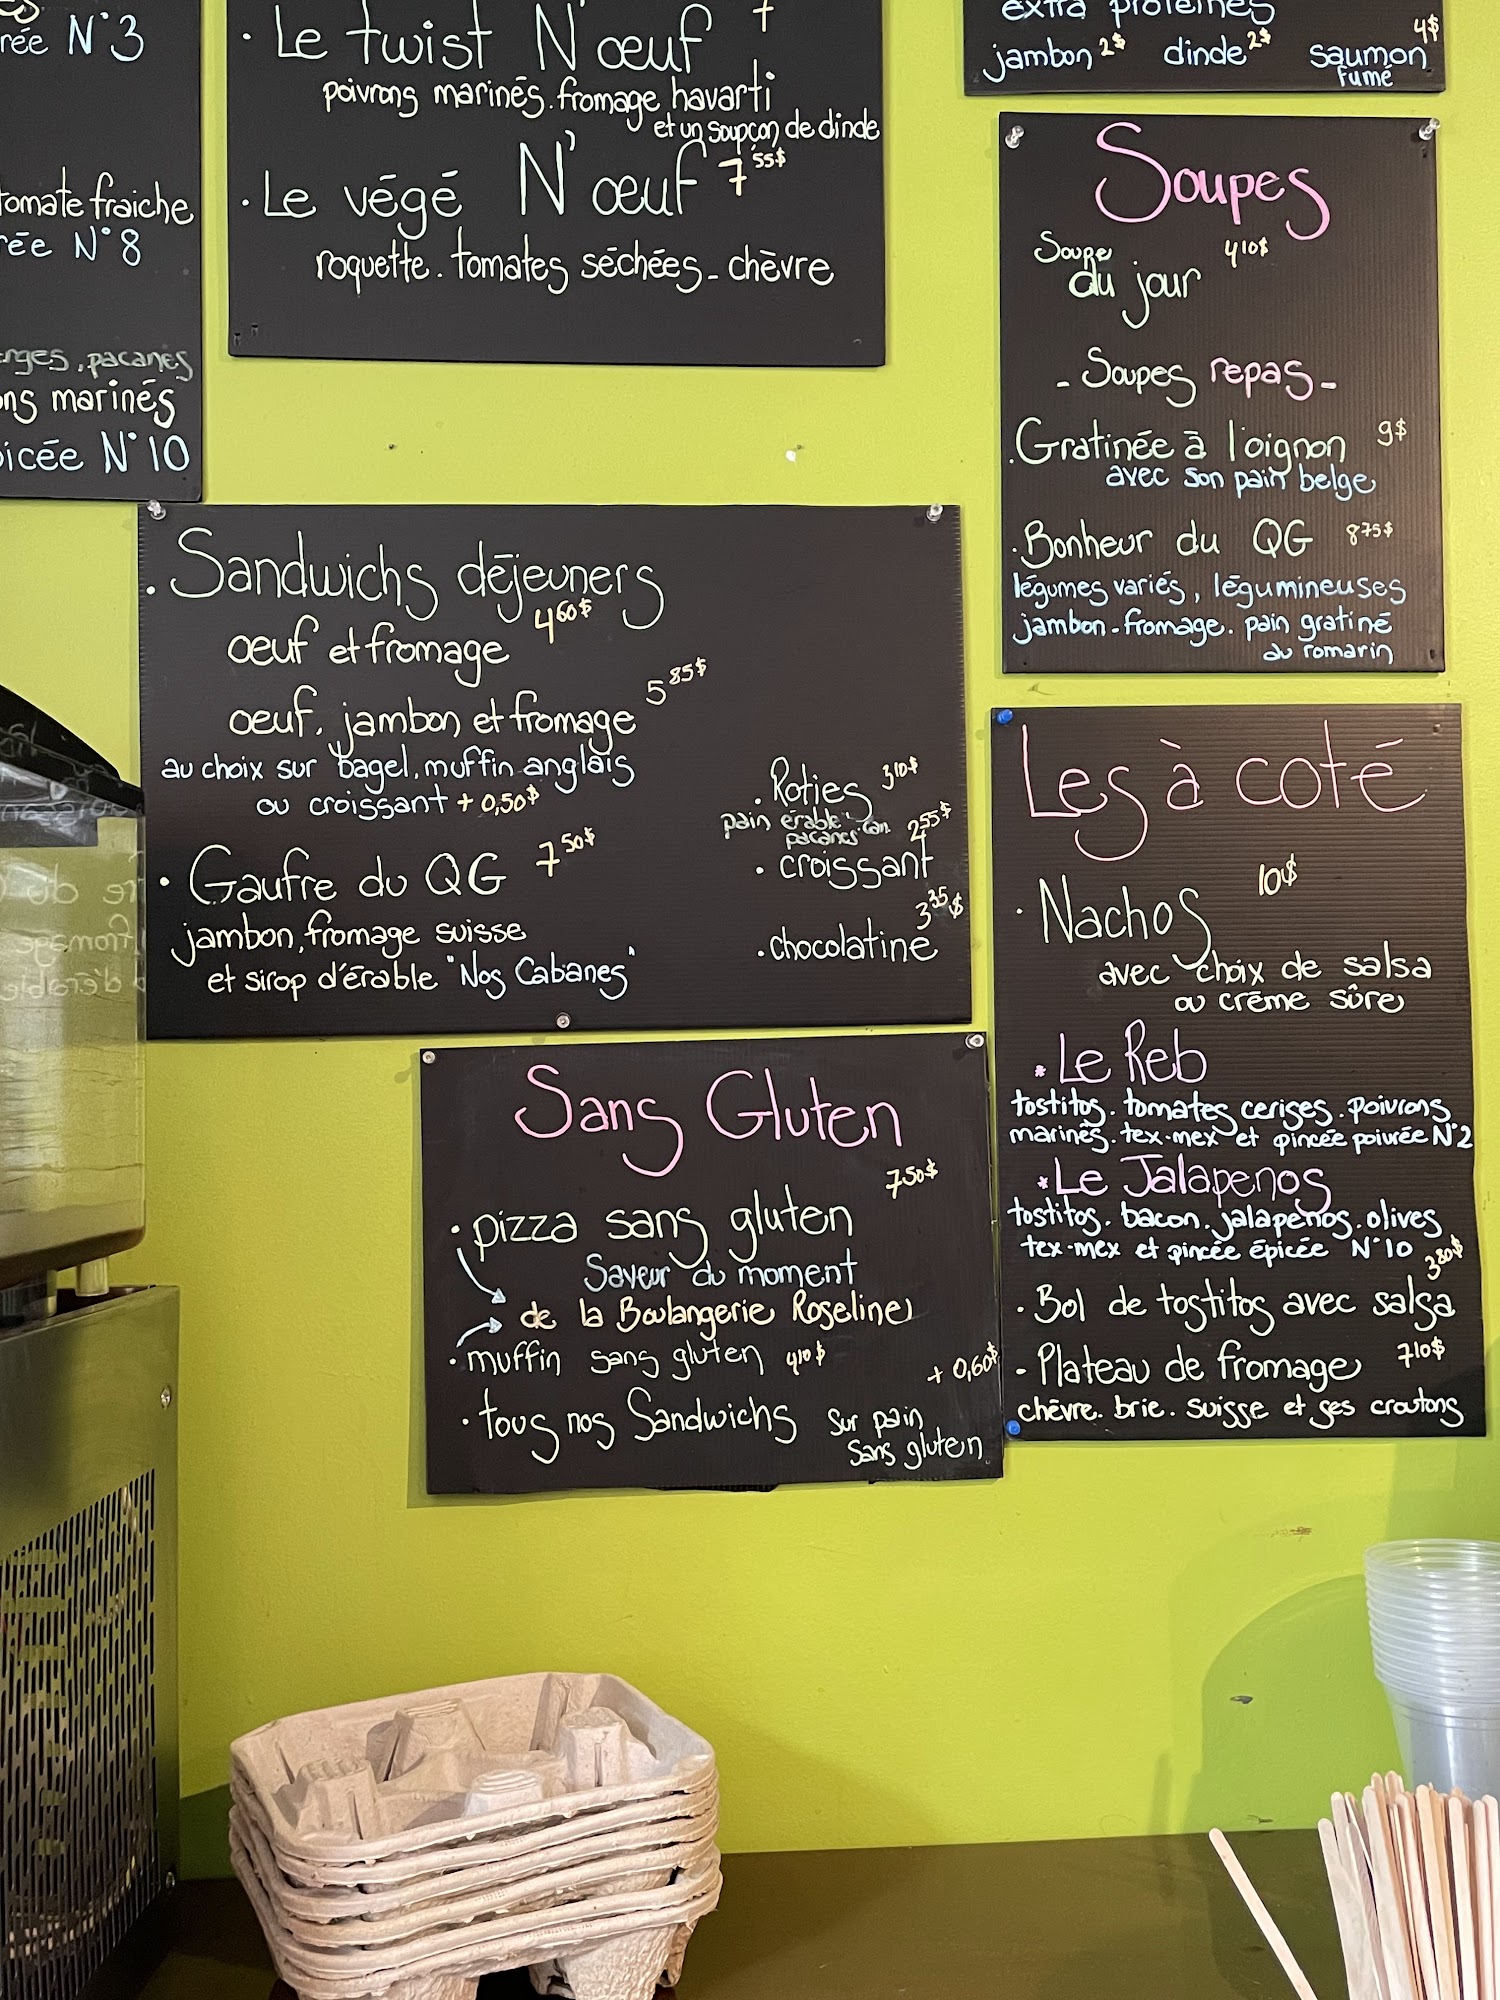 rée N°3
tomate fraiche
rée N°8
pacanes
marinés
N°10
· Le twist N'œuf 7
poivrons marinés. fromage havarti
et un soupçon de dinde
· Le végé N'œuf 7 55$
roquette. tomates séchées - chèvre
extra protéines
jambon 2$ dinde 2$ saumon 4$
fumé
Soupes
Soupe 4 10$
du jour
- Soupes repas -
· Gratinée à l'oignon 9$
avec son pain belge
· Bonheur du QG 8 75$
légumes variés, légumineuses
jambon - fromage. pain gratiné
au romarin
· Sandwichs déjeuners
œuf et fromage 4 60$
œuf, jambon et fromage 5 85$
au choix sur bagel, muffin anglais
ou croissant + 0,50$
· Gaufre du QG 7 50$
jambon, fromage suisse
et sirop d'érable "Nos Cabanes"
· Roties 3 10$
pain érable
pacanes
· croissant 2 55$
· chocolatine 3 35$
Les à coté
· Nachos 10$
avec choix de salsa
ou crème sûre
* Le Reb
tostitos. tomates cerises. poivrons
marinés. tex-mex et pincée poivrée N°2
* Le Jalapenos
tostitos. bacon. jalapenos. olives
tex-mex et pincée épicée N°10
· Bol de tostitos avec salsa 3 80$
- Plateau de fromage 7 10$
chèvre. brie. suisse et ses croutons
Sans Gluten
· pizza sans gluten 7 50$
Saveur du moment
de la Boulangerie Roseline
· muffin sans gluten 4 10$
· tous nos Sandwichs sur pain + 0,60$
sans gluten